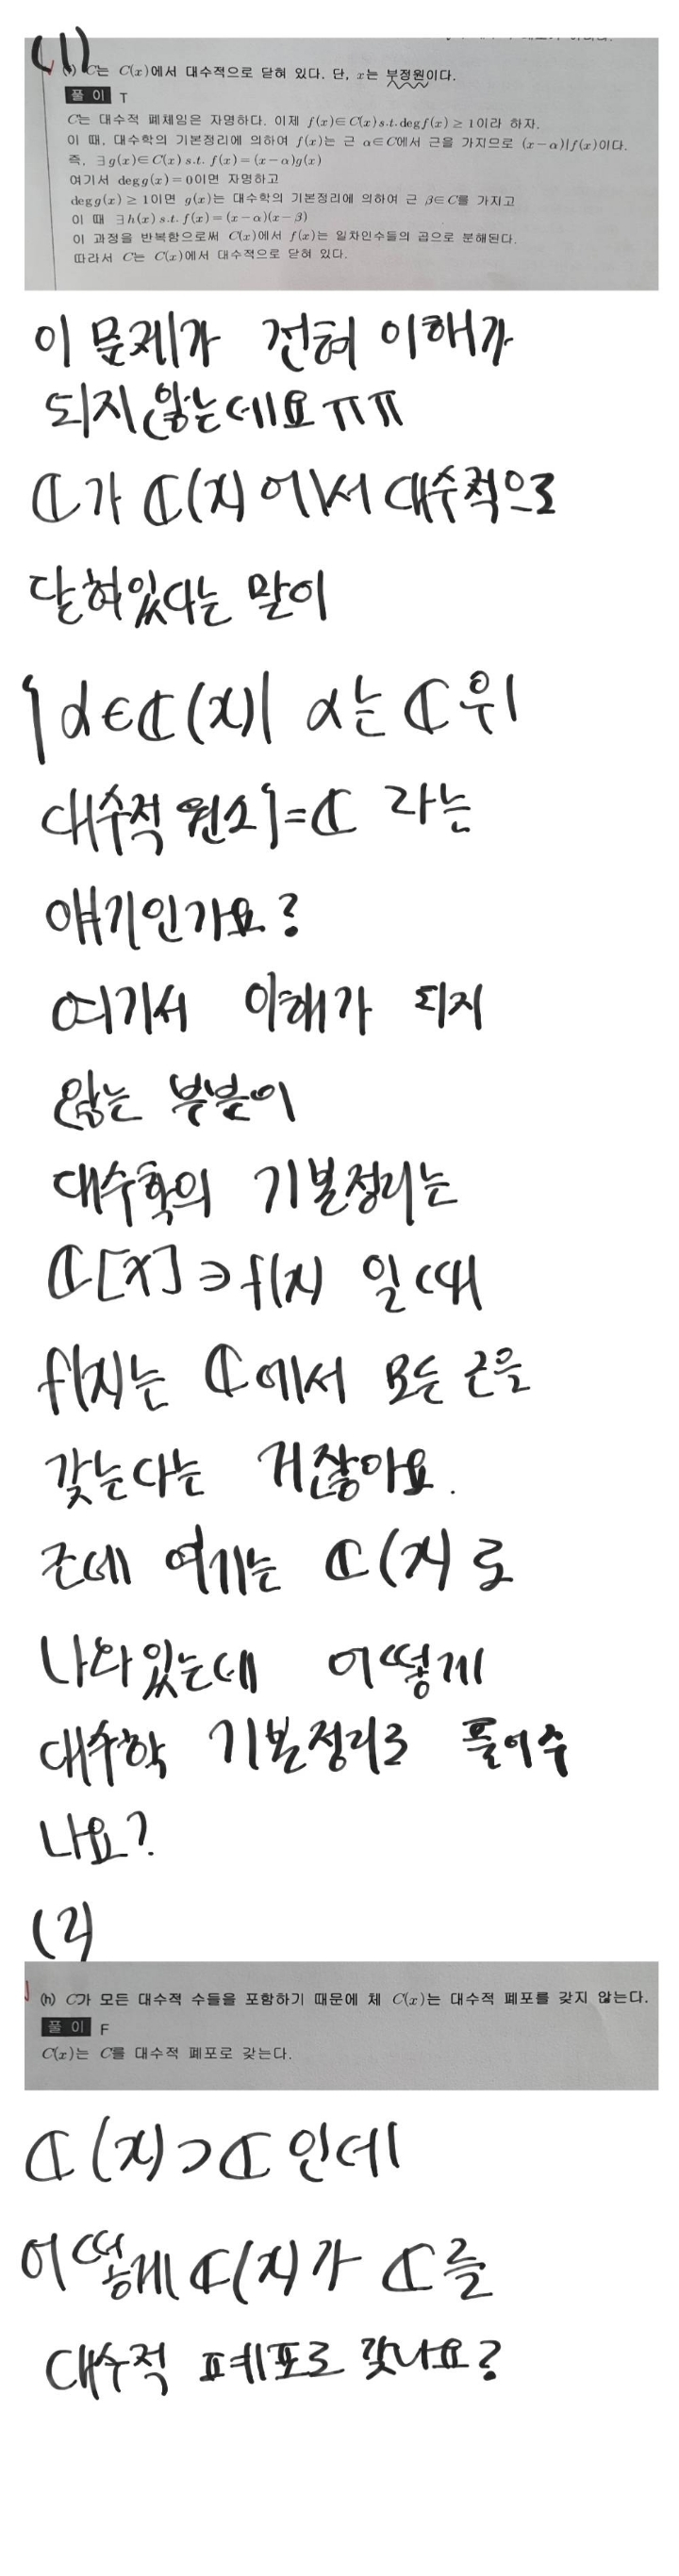 (1)
C는 C(x)에서 대수적으로 닫혀 있다. 단, x는 부정원이다.
풀 이 T
C는 대수적 폐체임은 자명하다. 이제 f(x)∈C(x) s.t. deg f(x) ≥ 1이라 하자.
이 때, 대수학의 기본정리에 의하여 f(x)는 근 α∈C에서 근을 가지므로 (x-α)|f(x)이다.
즉, ∃g(x)∈C(x) s.t. f(x)=(x-α)g(x)
여기서 deg g(x)=0이면 자명하고
deg g(x) ≥ 1이면 g(x)는 대수학의 기본정리에 의하여 근 β∈C를 가지고
이 때 ∃h(x) s.t. f(x)=(x-α)(x-β)
이 과정을 반복함으로써 C(x)에서 f(x)는 일차인수들의 곱으로 분해된다.
따라서 C는 C(x)에서 대수적으로 닫혀 있다.
이 문제가 전혀 이해가
되지않는데요ㅠㅠ
ℂ가 ℂ(x)에서 대수적으로
닫혀있다는 말이
{α∈ℂ(x)| α는 ℂ위
대수적 원소}=ℂ 라는
얘기인가요?
여기서 이해가 되지
않는 부분이
대수학의 기본정리는
ℂ[x]∋f(x) 일때
f(x)는 ℂ에서 모든 근을
갖는다는 거잖아요.
근데 여기는 ℂ(x)로
나와있는데 어떻게
대수학 기본정리로 풀어주
나요?
(2)
(h) C가 모든 대수적 수들을 포함하기 때문에 체 C(x)는 대수적 폐포를 갖지 않는다.
풀 이 F
C(x)는 C를 대수적 폐포로 갖는다.
ℂ(x)⊃ℂ인데
어떻게 ℂ(x)가 ℂ를
대수적 폐포로 갖나요?